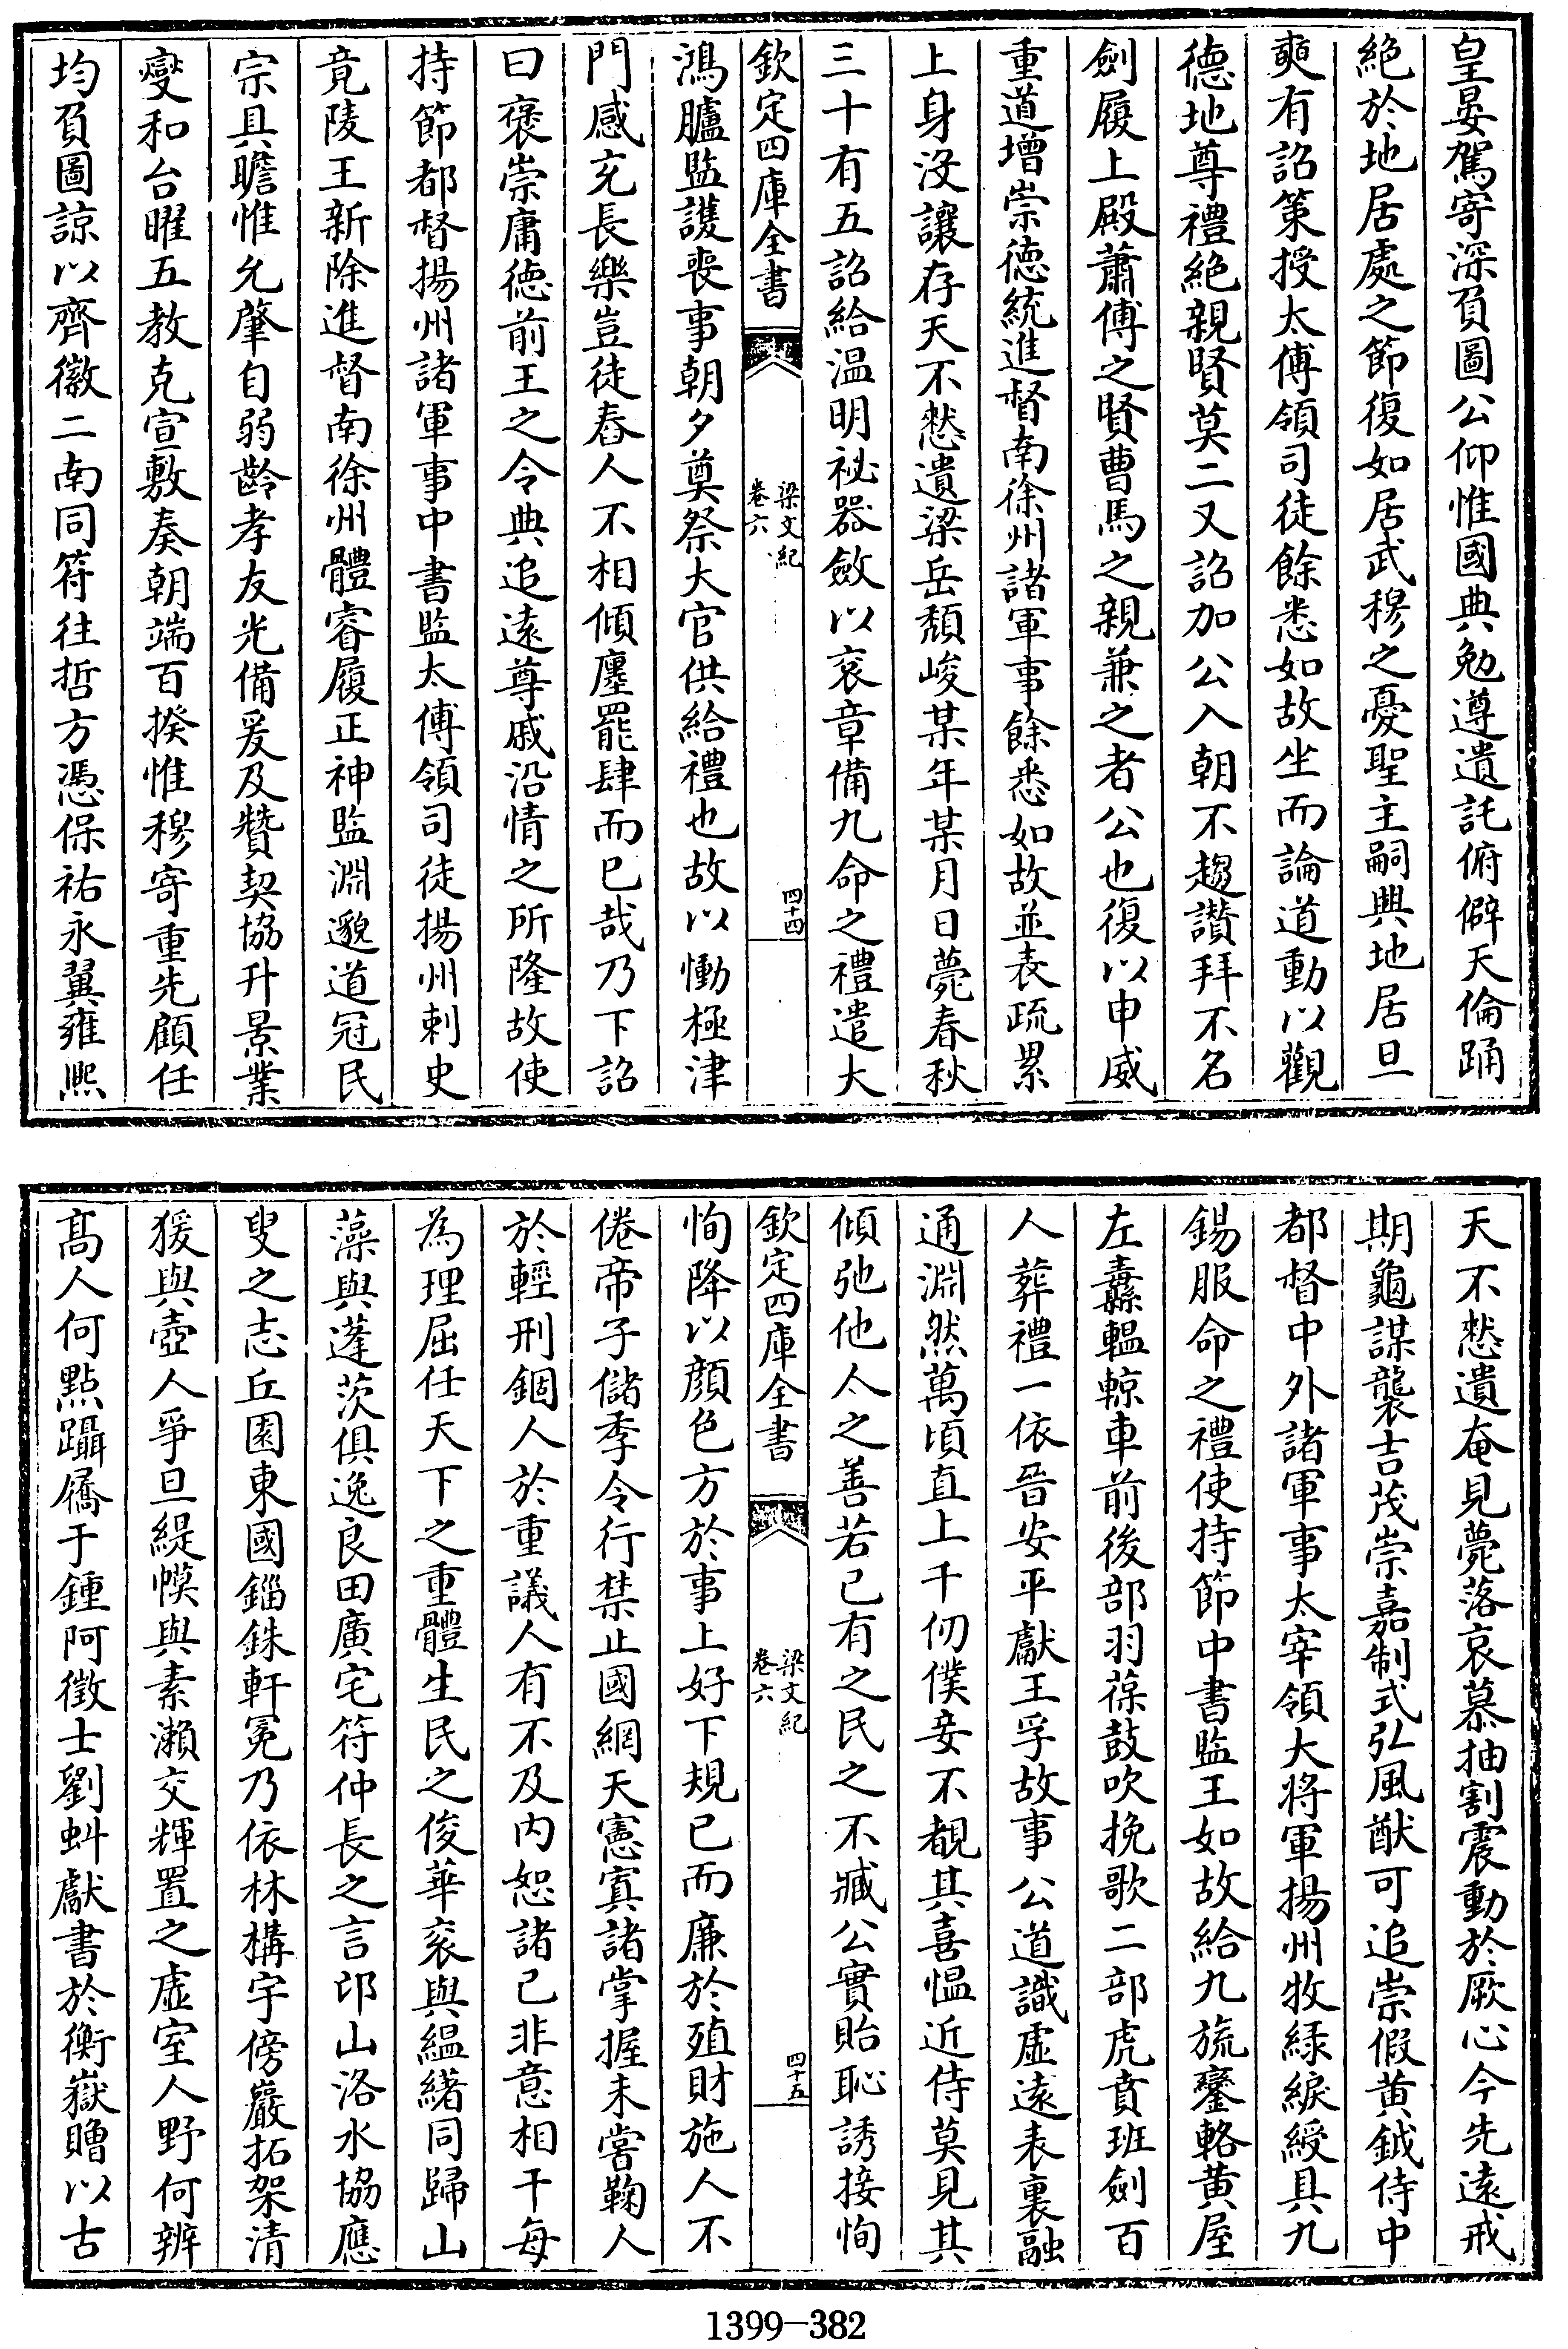 皇晏駕寄深負圖公仰惟國典勉遵遺託俯僻天倫踊
絶於地居處之節復如居武穆之憂聖主嗣興地居旦
奭有詔策授太傅領司徒餘悉如故坐而論道動以觀
德地尊禮絶親賢莫二又詔加公入朝不趨讚拜不名
劍履上殿蕭傅之賢曹馬之親兼之者公也復以申威
重道增崇德統進督南徐州諸軍事餘悉如故並表疏累
上身沒讓存天不憖遺梁岳頽峻某年某月日薨春秋
三十有五詔給温明祕器斂以衮章備九命之禮遣大
欽定四庫全書
梁文紀
卷六
四十四
鴻臚監護喪事朝夕奠祭大官供給禮也故以慟極津
門感充長樂豈徒舂人不相傾廛罷肆而已哉乃下詔
曰褒崇庸德前王之令典追遠尊戚沿情之所隆故使
持節都督揚州諸軍事中書監太傅領司徒揚州刺史
竟陵王新除進督南徐州體睿履正神監淵邈道冠民
宗具瞻惟允肇自弱齡孝友光備爰及贊契協升景業
燮和台曜五教克宣敷奏朝端百揆惟穆寄重先顧任
均負圖諒以齊徽二南同符往哲方憑保祐永翼雍熈
天不憖遺奄見薨落哀慕抽割震動於厥心今先遠戒
期龜謀襲吉茂崇嘉制式弘風猷可追崇假黄鉞侍中
都督中外諸軍事太宰領大將軍揚州牧緑綟綬具九
錫服命之禮使持節中書監王如故給九旒鑾輅黄屋
左纛轀輬車前後部羽葆鼓吹挽歌二部虎賁班劍百
人葬禮一依晉安平獻王孚故事公道識虚遠表裏融
通淵然萬頃直上千仞僕妾不覩其喜愠近侍莫見其
傾弛他人之善若已有之民之不臧公實貽恥誘接恂
欽定四庫全書
梁文紀
卷六
四十五
恂降以顔色方於事上好下規已而廉於殖財施人不
倦帝子儲季令行禁止國網天憲寘諸掌握未嘗鞠人
於輕刑錮人於重議人有不及内恕諸已非意相干每
為理屈任天下之重體生民之俊華衮與緼緒同歸山
藻與蓬茨俱逸良田廣宅符仲長之言邙山洛水協應
叟之志丘園東國錙銖軒冕乃依林構宇傍巖拓架清
猨與壺人爭旦緹幙與素瀨交輝置之虚室人野何辨
髙人何㸃躡屩于鍾阿徵士劉虬獻書於衡嶽贈以古
1399-382